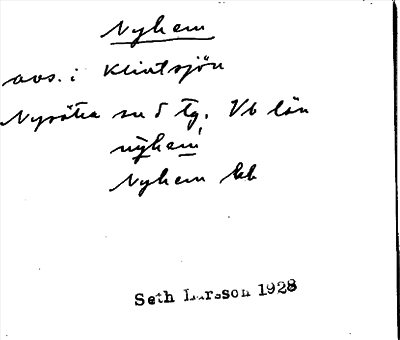 Nyhem
avs. i Klintsjön
Nysätra sn S tg. Vb län
nyhem
Nyhem kb
Seth Larsson 1928